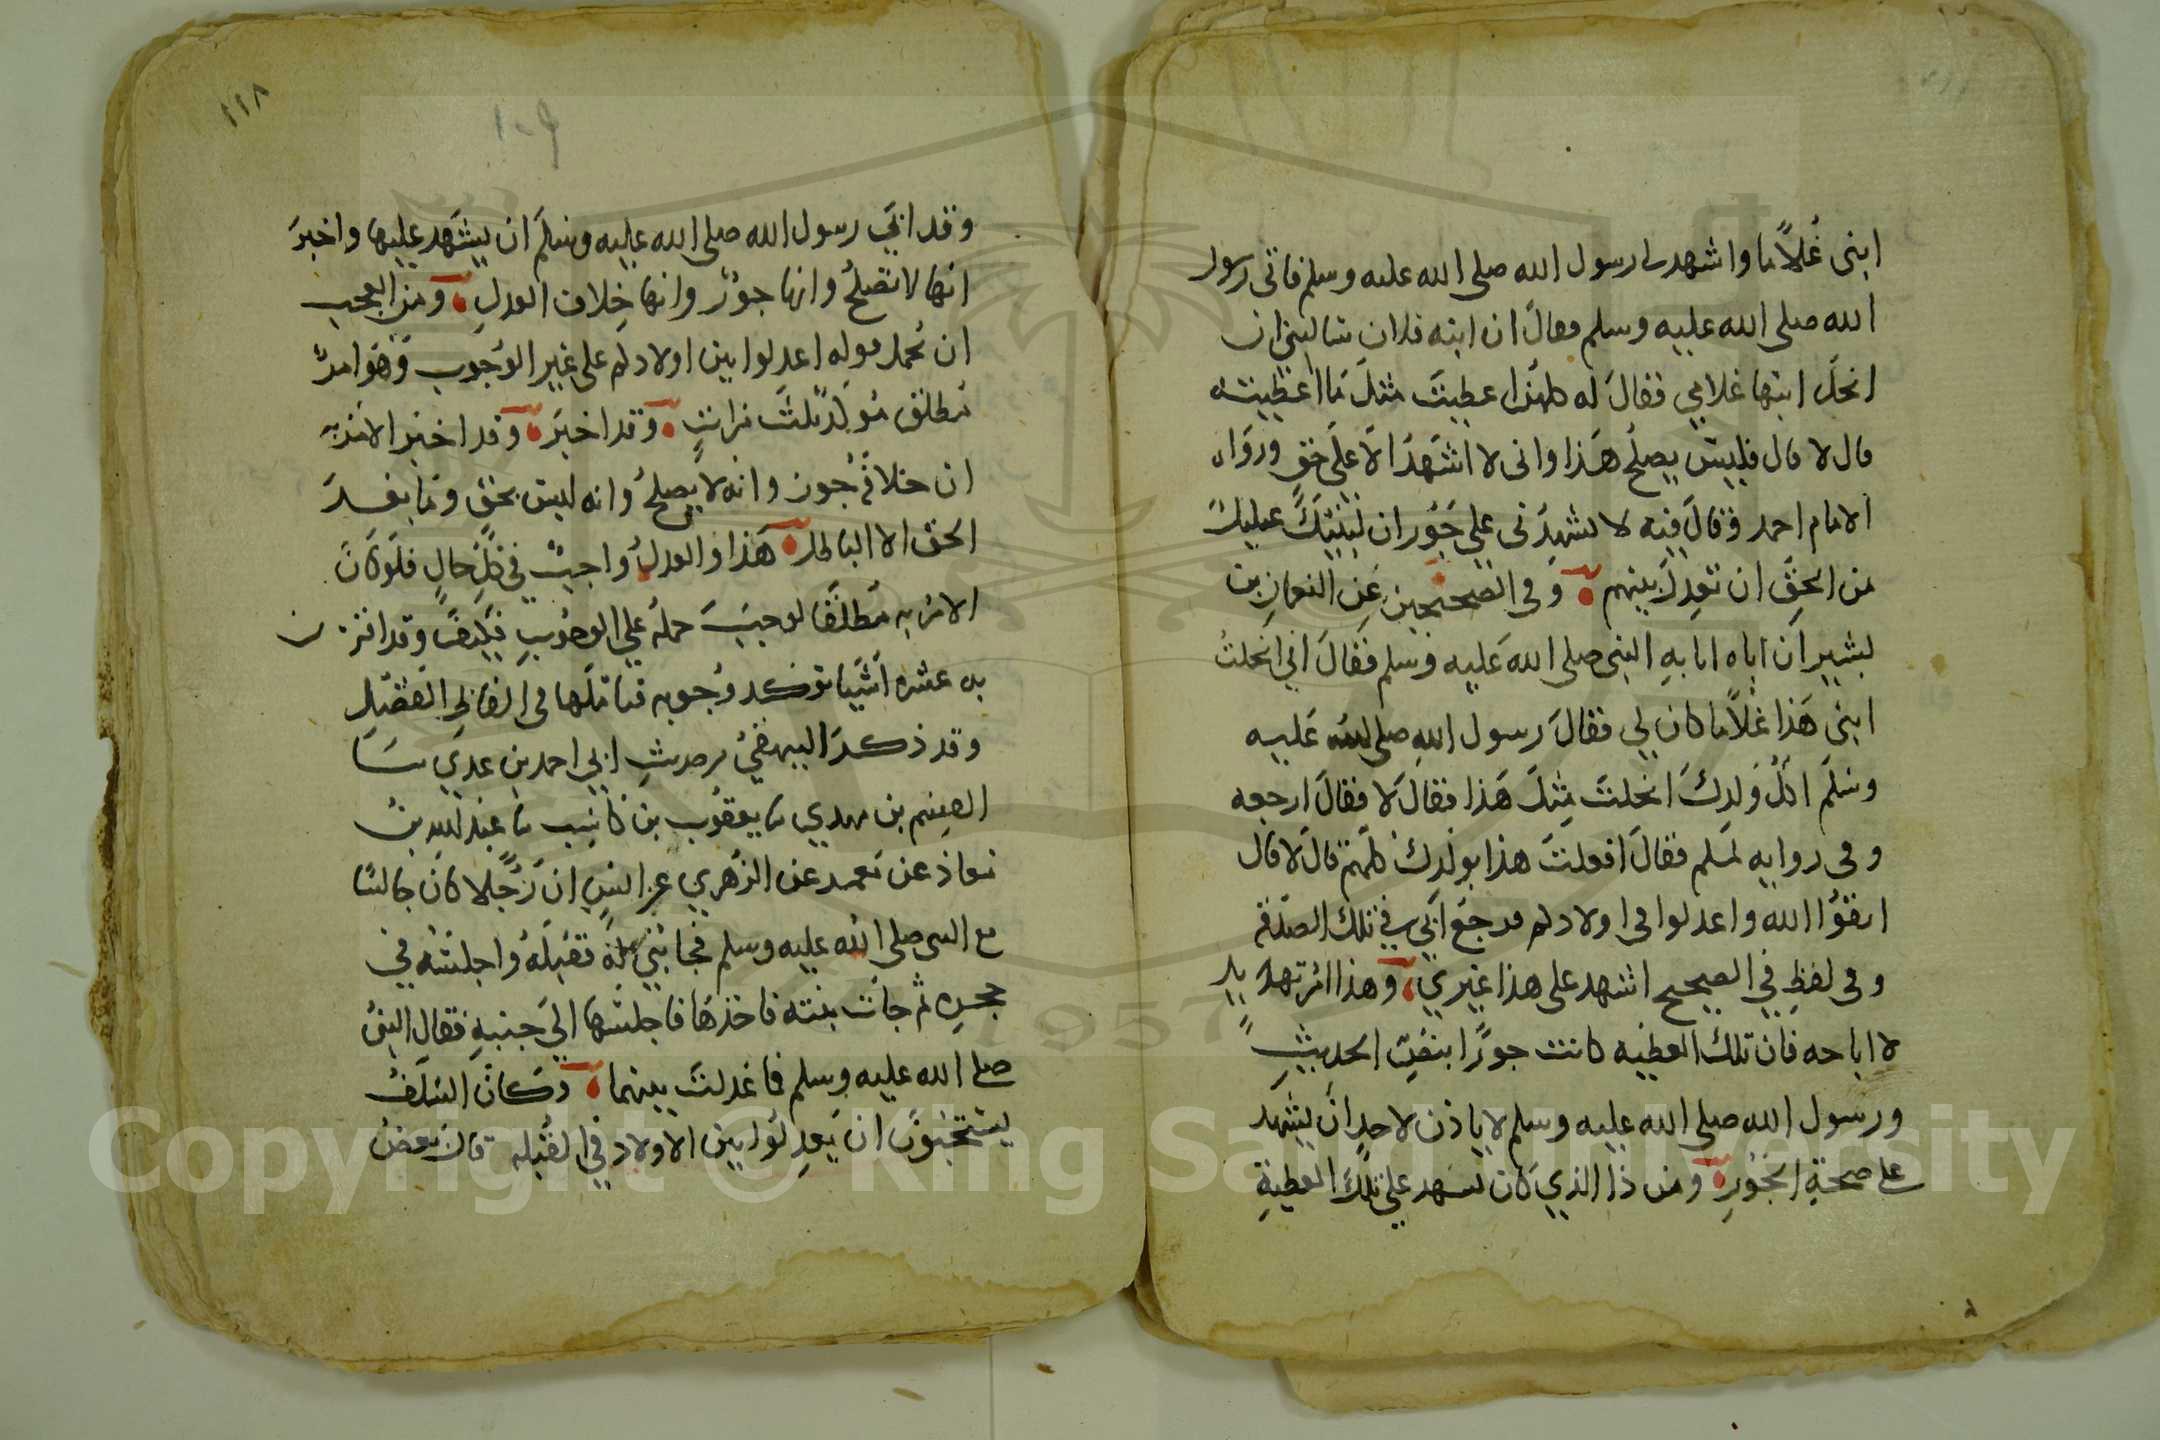 ابنى غُلامًا واشهد لى رسول الله صلى الله عليه وسلم فاتى رسول
الله صلى الله عليه وسلم فقال ان ابنه فلان سالتنى ان
انحل ابنها غلامي فقالَ له اخوة قال نعم قال فكلهم اعطيت مثلَ مَا اعطيته
قال لا قال فليس يصلحُ هَذا وانى لا اشهَدُ الا على حَقٍ وروَاه
الامام احمد وقالَ فيه لا تشهِدْنى علي جَوْر ان لبنيكَ عليكَ
من الحقِّ ان تعدِلَ بينهم وفى الصحيحين عَنِ النعمانِ بن
بشير ان اباه اتا به النبى صلى الله عَليه وسلم فقالَ انى انحلتُ
ابنى هَذا غُلاماً كان لي فقالَ رسول اللهِ صلى الله عَليه
وسَلم اكلُ وَلدِكَ انحلتَ مِثلَ هَذا فقالَ لا فقالَ ارجعه
وفى روايه لمسلم فقالَ افعلتَ هذا بولدِكَ كلهم قالَ لا قال
اتقوُا الله واعدلوا فى اولادكم فرجعَ ابى في تلك الصَدقه
وفى لفظِ في الصحيح اشهد على هذا غيري وهذا امر تهديد
لا اباحه فان تلك العطيه كانت جورًا بنصِ الحديثِ
ورسول الله صلى الله عليه وسلم لا ياذن لاحدٍ ان يشهد
على صحةِ الجَوْرِ ومن ذا الذي كان يشهد على تلكَ العطيةِ
١١٨
١٠٩
وقد ابَى رسول الله صلى الله عليه وسَلمَ ان يشهَد عليها واخبرَ
انها لا تصلحُ وانها جورٌ وانها خِلاف العدلِ ومن العجب
ان يُحمل قوله اعدلوا بين اولادكم على غير الوُجوب وَهوَ امرٌ
مُطلق مُؤكد ثلثَ مراتٍ وقد اخبرَ وقد اخبرَ الامر به
ان خلافهُ جُور وانه لا يصلحُ وانه ليسَ بحق ومَا بعدَ
الحق الا الباطل هَذا والعدلُ واجبٌ في كلِ حَالٍ فلَو كانَ
الامرُ به مُطلقًا لوجبَ حملهُ علي الوجُوبِ فكيفَ وقد اقترن
به عشره اشيَا توكد وُجوبه فتاملها فى الفاظِ القصَّةِ
وقد ذكرَ البيهقيُ من حديثِ ابي احمد بن عدي ثنا
القسِم بن مهدي ثنا يعقوُب بن كاسِب ثنا عَبدالله بن
معاذ عن مَعمر عن الزهري عن انسٍ ان رَجُلا كان جَالسًا
مع النبى صلى الله عليه وسلم فجا بُنيٌ لهُ فقبلَهُ واجلسَهُ في
حجرِه ثم جاَت بنته فاخذهَا فاجلسَها الي جَنبِه فقال النبىُ
صلى الله عليه وسلم فما عَدلتَ بينهما وكانَ السَلفُ
يستحبوُنَ ان يَعدِلُوا بين الاولاد في القُبله قال بعضُ